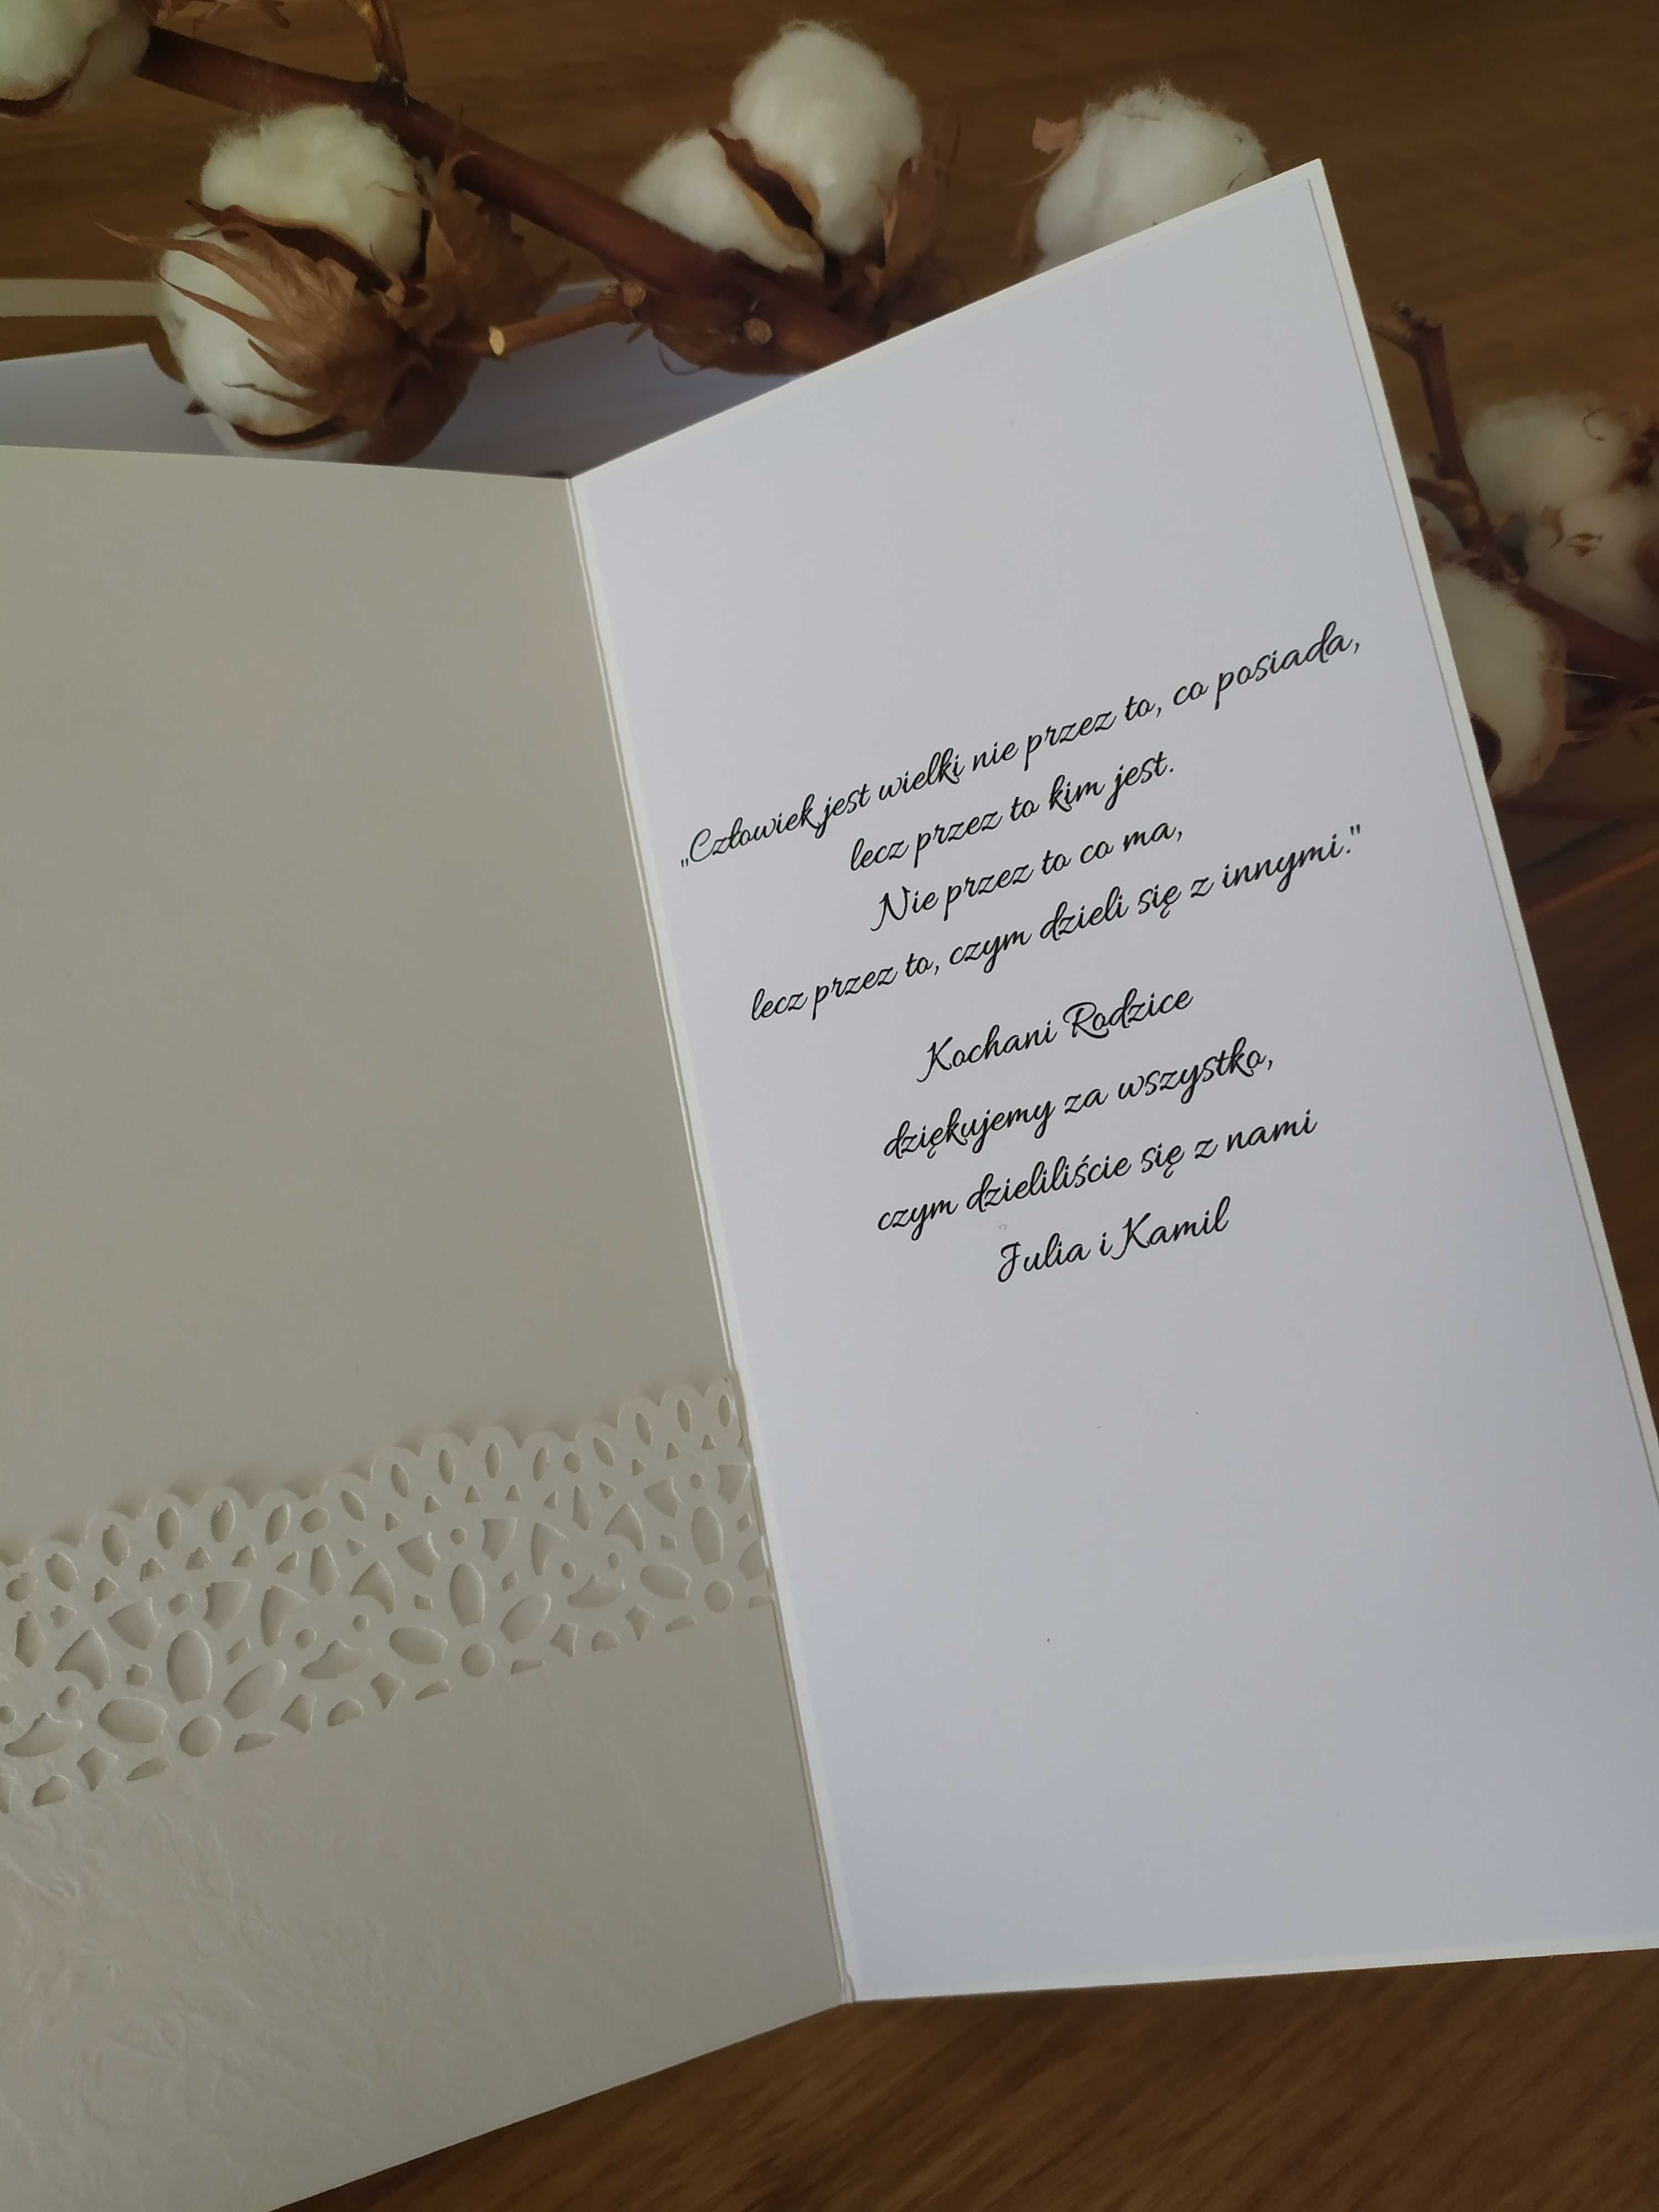 „Człowiek jest wielki nie przez to, co posiada,
lecz przez to kim jest.
Nie przez to co ma,
lecz przez to, czym dzieli się z innymi."
Kochani Rodzice
dziękujemy za wszystko,
czym dzieliliście się z nami
Julia i Kamil